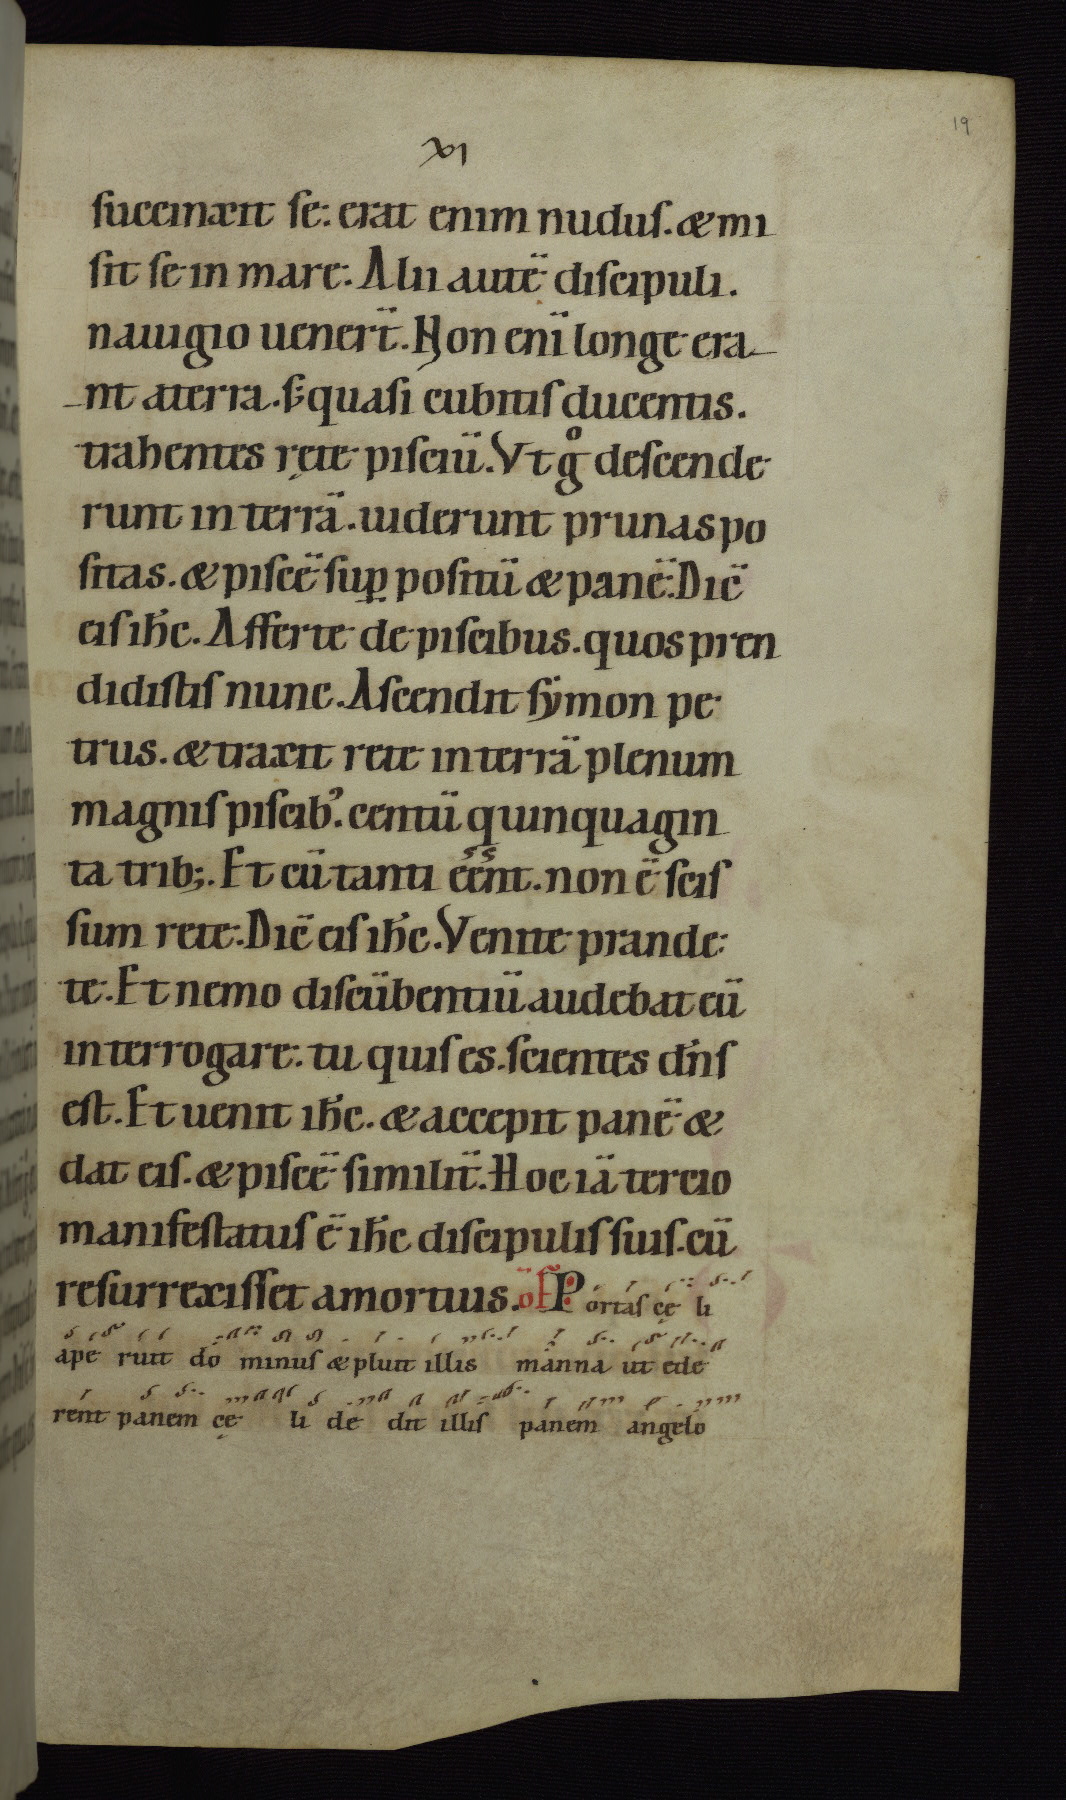 19
XI
succinxit se: erat enim nudus. & mi
sit se in mare. Alii autē discipuli.
nauigio uenerт̄. Non enī longe era
nt a terra. s; quasi cubitis ducentis.
trahentes rete pisciū. Vt gͦ descende
runt in terrā. uiderunt prunas po
sitas. & piscē sup̲ positū & panē. Dic̄
eis ih̄c. Afferte de piscibus. quos pren
didistis nunc. Ascendit symon pe
trus. & traxit rete in terrā plenum
magnis piscib'. centū quinquagin
ta trib;. Et cū tanti ēēnt. non ē scis
sum rete. Dic̄ eis ih̄c. Venite prande
te. Et nemo discūbentiū audebat eū
interrogare. tu quis es. scientes dn̄s
est. Et uenit ih̄c. & accepit panē &
dat eis. & piscē similit̄. Hoc iā tercio
manifestatus ē ih̄c discipulis suis. cū
resurrexisset a mortuis. of̄ Portas cę li
ape ruit do minus & pluit illis manna ut ede
rent panem cę li de dit illis panem angelo